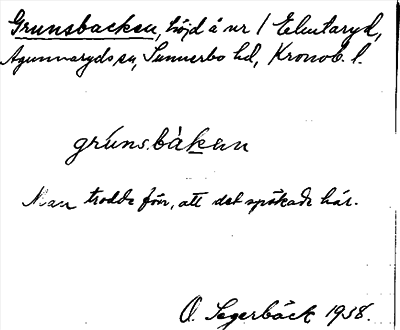 Grunsbacken, höjd å nr 1 Elmtaryd,
Agunnaryds sn, Sunnerbo hd, Kronob. l.
grúns.bàkan
Man trodde förr, att det spökade här.
O. Segerbäck 1938.